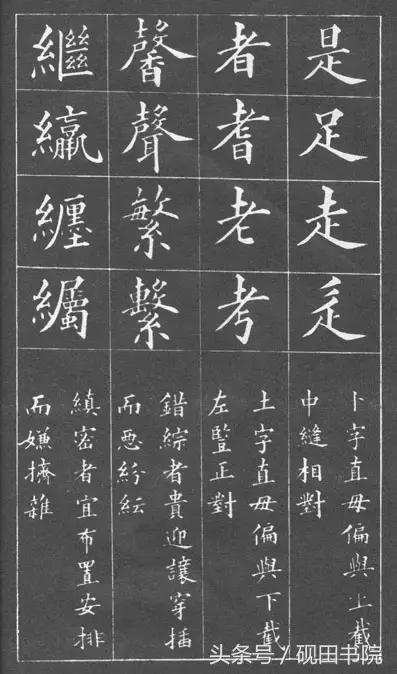 是足走辵
卜字直毋偏與上截
中縫相對
者耆老考
土字直毋偏與下截
左豎正對
馨聲繁繫
錯綜者貴迎讓穿插
而惡紛紜
繼纏
縝密者宜布置安排
而嫌擠雜
头条号/砚田书院